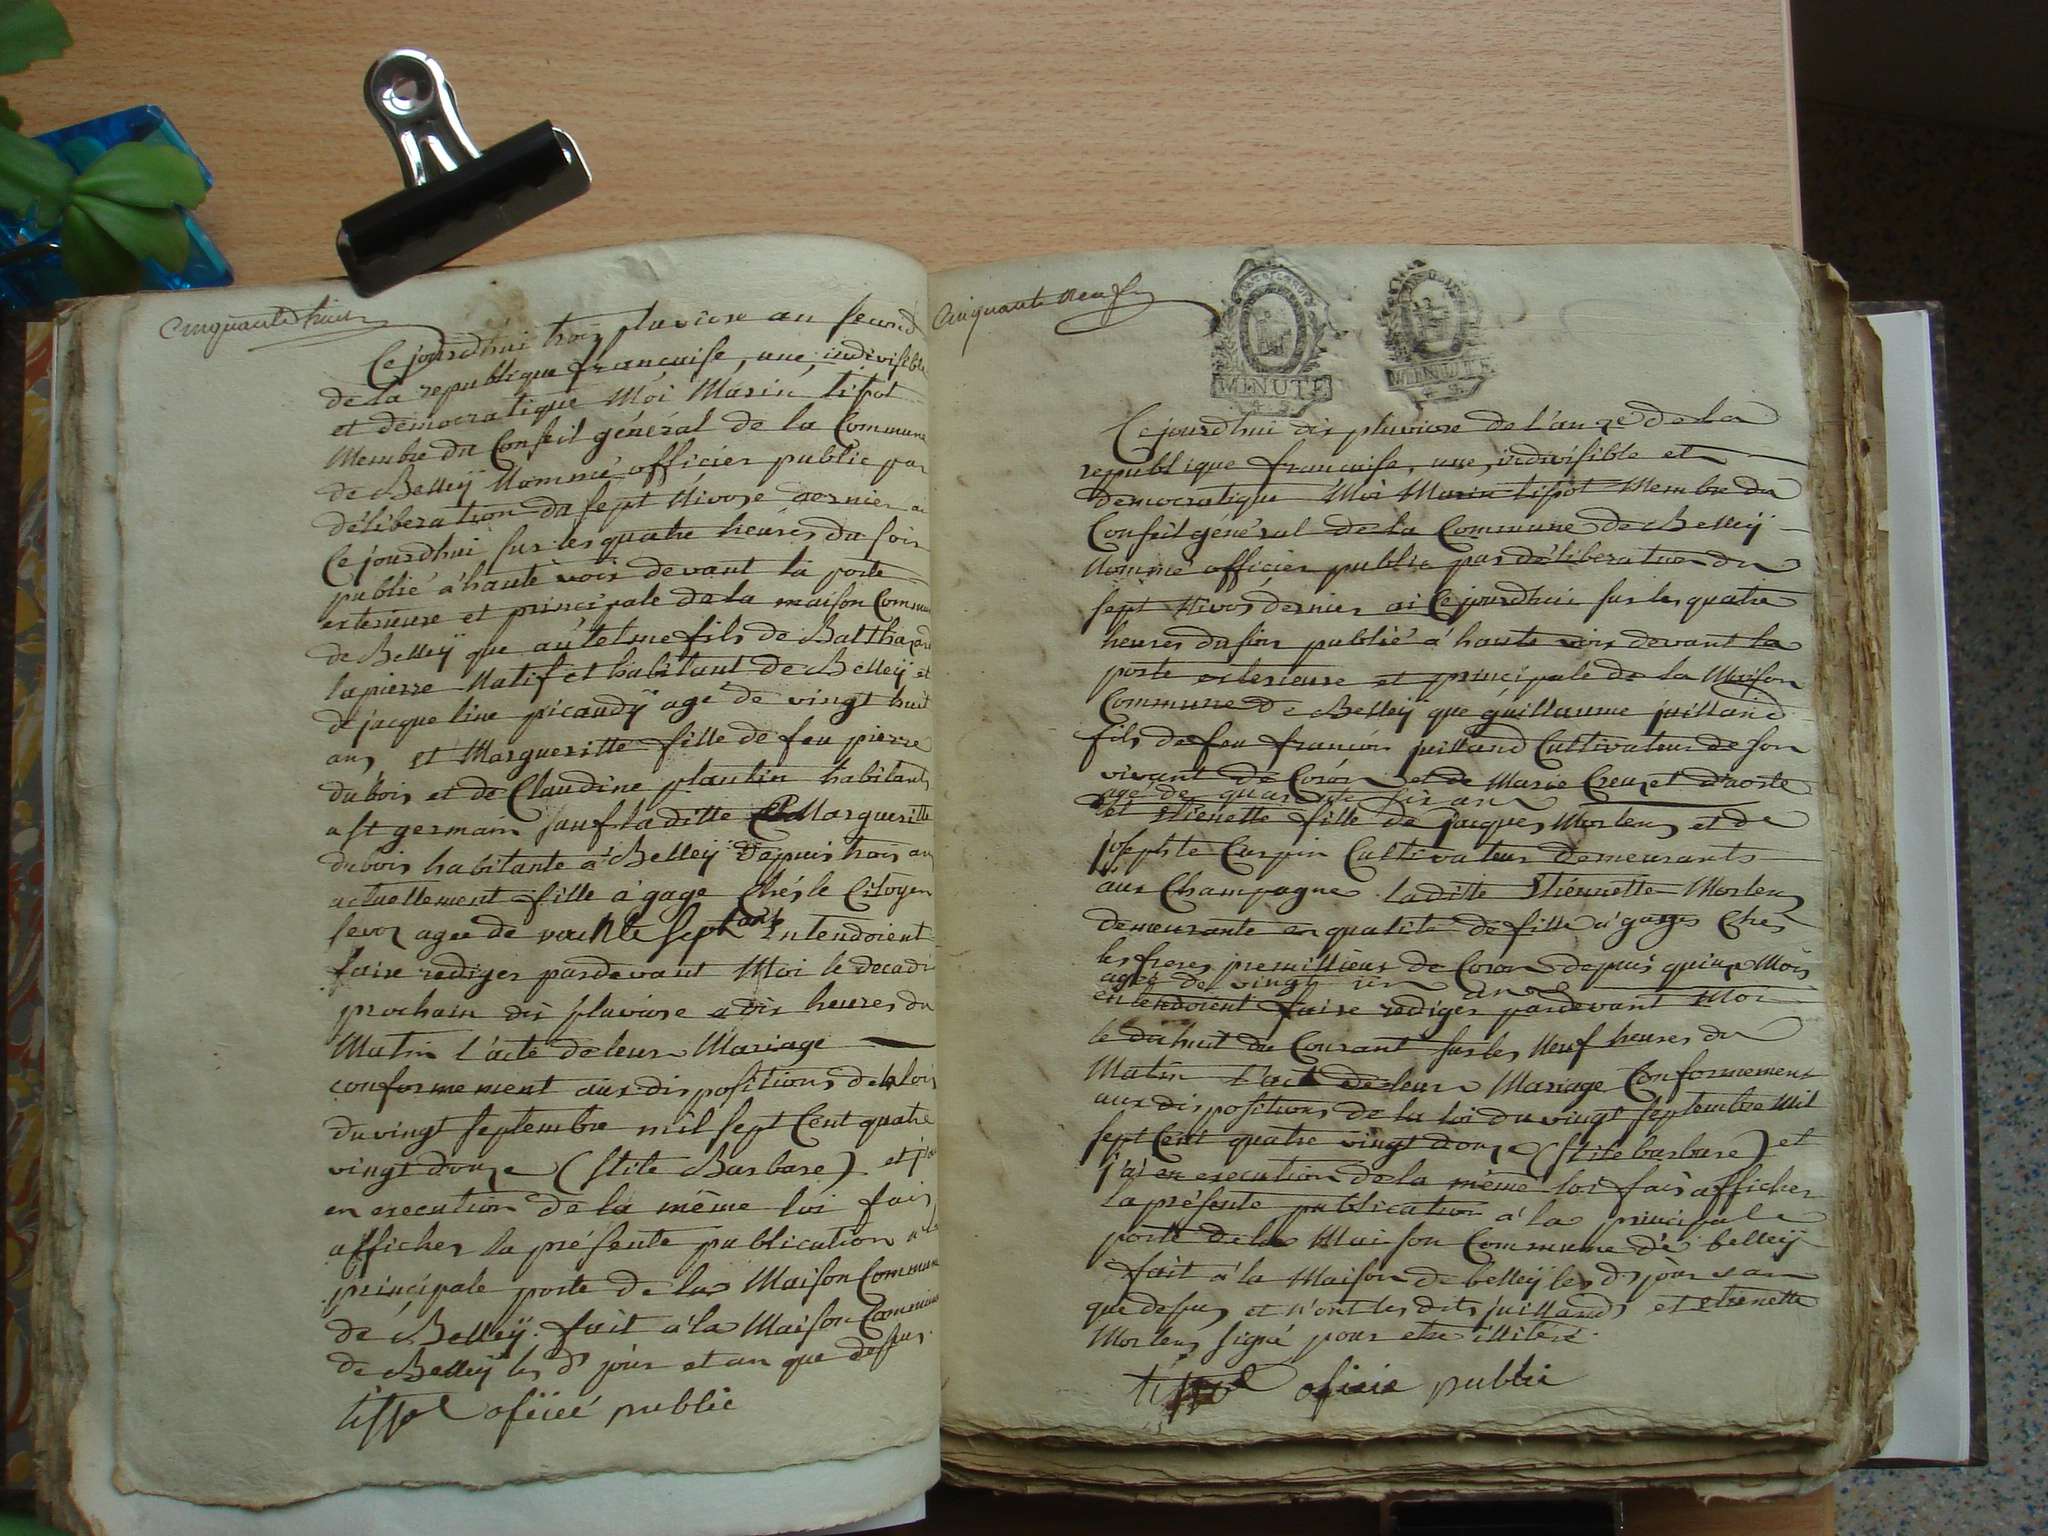 Cinquante huit
Ce jourdhui trois pluviose an second
de la republique françaife, une, indivifible
et démocratique Moi Marin tifot
Membre du Confeil général de la Commune
de Belleÿ Nommé officier public par
déliberation du fept Nivose dernier ai
Ce jourdhui fur les quatre heures du foir
publié à haute voix devant la porte
exterieure et principale de la maifon Commune
de Belleÿ que antelme fils de Balthazard
lapierre Natif et habitant de Belleÿ et
de jacqueline picaudÿ agé de vingt huit
ans, et Margueritte fille de feu pierre
dubois et de Claudine plantin habitants
a St germain fauf la ditte Margueritte
dubois habitante à Belleÿ depuis trois ans
actuellement fille à gage Chés le Citoyen
fevoz agée de vente fept ans Entendoient
faire rediger pardevant Moi le decadi
prochain dix pluviose a dix heures du
Matin l'acte de leur Mariage
conformement aux dispofitions de la loi
du vingt feptembre mil fept Cent quatre
vingt douze (ftile Barbare) et j'ai
en execution de la même loi fais
afficher la préfente publication à la
principale porte de la Maifon Commune
de Belleÿ. fait à la Maifon Commune
de Belleÿ les d jour et an que deffus.
tiffot oficié public
Cinquante Neuf
Ce jourdhui dix pluviose de l'an 2e de la
republique françaife, une, indivifible et
democratique Moi Marin tifot Membre du
Confeil général de la Commune de Belleÿ
Nommé officier public par déliberation du
fept Nivos dernier ai Ce jourdhui fur les quatre
heures du foir publié à haute voix devant la
porte exterieure et principale de la Maifon
Commune de Belleÿ que guillaume juilland
fils de feu françois juilland Cultivateur de fon
vivant de Coron et de Marie Creuzet d'aoste
agé de quarante fix ans
et Etiénette fille de jacques Morlens et de
jofephte Carpin Cultivateur demeurants
aux Champagne la ditte Etiennette Morlens
demeurante en qualité de fille à gages Chés
les freres premillieux de Coron depuis quinze Mois
agée de vingt un ans
entendoient faire rediger pardevant Moi
le dix huit du Courant fur les Neuf heures du
Matin l'acte de leur Mariage Conformement
aux dispofitions de la loi du vingt feptembre Mil
fept Cent quatre vingt douze (ftile barbare) et
j'ai en execution de la même loi fais afficher
la préfente publication à la principale
porte de la Maifon Commune de belleÿ
fait à la Maifon de belleÿ les d jour et an
que deffus, et n'ont les dits juilland, et etienette
Morlens figné pour etre illitéré.
tiffot oficié public
MINUTE
MINUTE